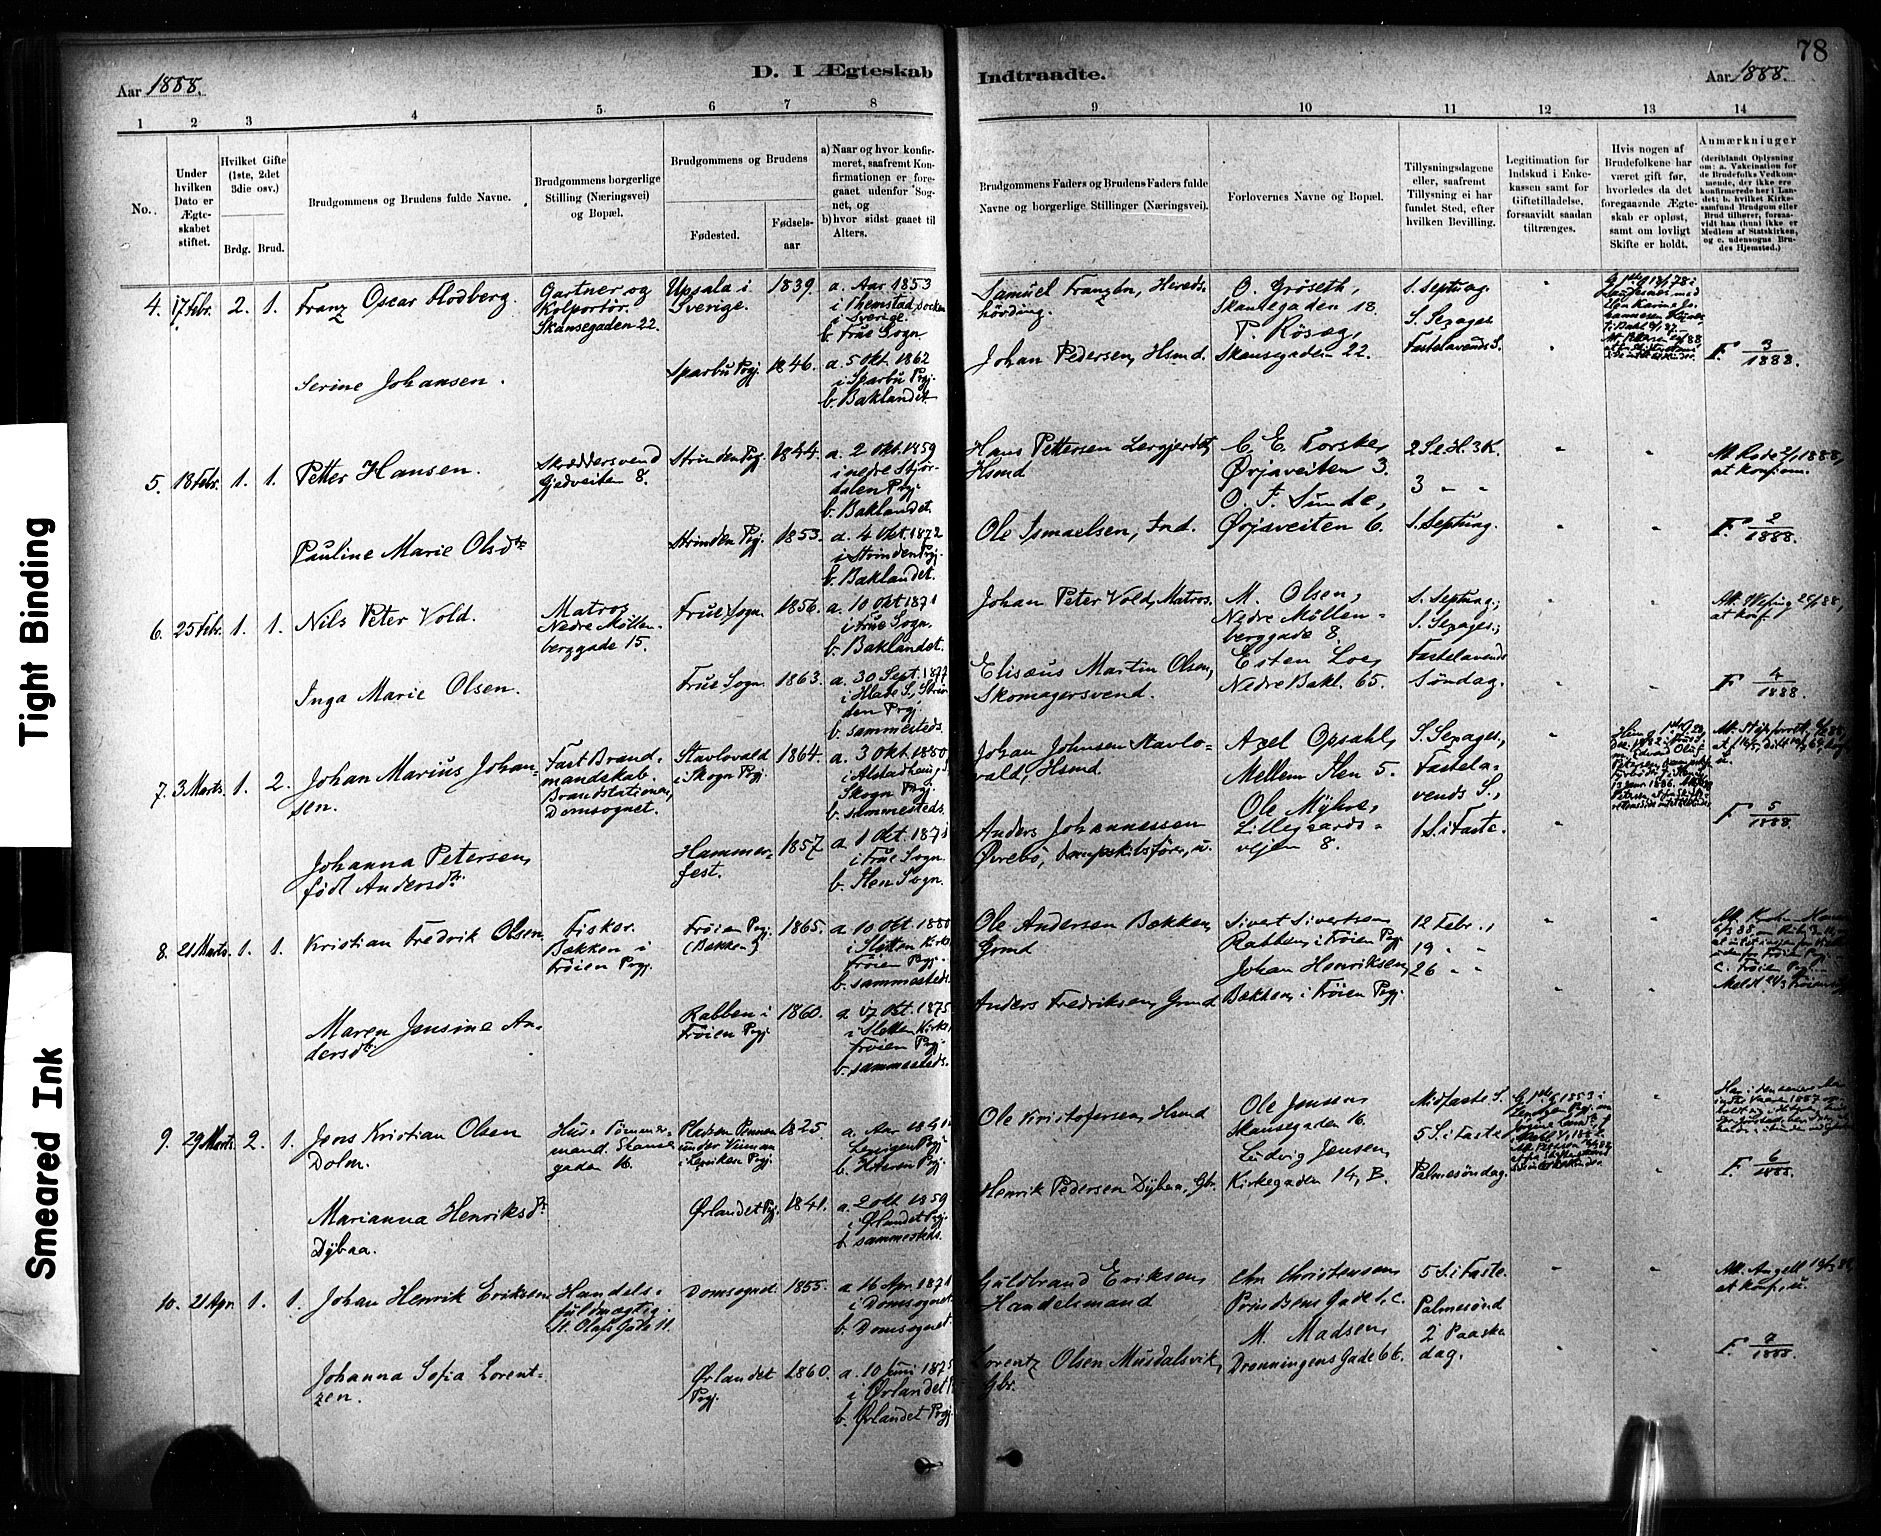 78
D. I Ægteskab Indtraadte.
Aar 1888.
Aar 1888.
1 2 3 4 5. 6 7 8 9 10 11 12 13 14
No.
Under hvilken Dato er Ægteskabet stiftet.
Hvilket Gifte (1ste, 2det 3die osv.)
Brdg. Brud.
Brudgommens og Brudens fulde Navne.
Brudgommens borgerlige Stilling (Næringsvei) og Bopæl.
Brudgommens og Brudens
Fødested.
Fødsels-aar
a) Naar og hvor konfirmeret, saafremt Konfirmationen er foregaaet udenfor Sognet, og
b) hvor sidst gaaet til Alters.
Brudgommens Faders og Brudens Faders fulde Navne og borgerlige Stillinger (Næringsvei).
Forlovernes Navne og Bopæl.
Tillysningsdagene eller, saafremt Tillysning ei har fundet Sted, efter hvilken Bevilling.
Legitimation for Indskud i Enkekassen samt for Giftetilladelse, forsaavidt saadan tiltrænges.
Hvis nogen af Brudefolkene har været gift før, hvorledes da det foregaaende Ægteskab er opløst, samt om lovligt Skifte er holdt.
Anmærkninger
(deriblandt Oplysning om: a. Vakcination for de Brudefolks Vedkommende, der ikke ere konfirmerede her i Landet; b. hvilket Kirkesamfund Brudgom eller Brud tilhører, forsaavidt han (hun) ikke er Medlem af Statskirken, og c. udensogns Brudes Hjemsted.)
4. 17 Febr. 2. 1. Franz Oscar Flodberg.
Gartner og Kolportör. Skansegaden 22.
Upsala i Sverige. 1839.
a. Aar 1853 i Sverige. b. Frue Sogn.
Samuel Franzén, Heredshövding.
O. Gröseth, Skansegaden 18.
P. Rösæg, Skansegaden 22.
S. Septuag. S. Sexages. Fastelavends S.
Serine Johansen.
Sparbu Prgj. 1846.
a. 5 Okt. 1862 i Sparbu Prgj. b. Baklandet.
Johan Pedersen, Hsmd.
F 3/1888.
5. 18 Febr. 1. 1. Petter Hansen.
Skræddersvend Gjedveiten 8.
Strinden Prgj. 1844.
a. 2 Okt. 1859 i nedre Stjørdalen Prgj. b. Baklandet.
Hans Pettersen Lergjerdet, Hsmd
C. E. Forske, Ørjaveiten 3.
O. F. Sunde, Ørjaveiten 6.
2 S. e. H. 3 K.
3 " "
S. Septuag.
Pauline Marie Olsdtr
Strinden Prgj. 1853.
a. 4 Okt. 1872 i Strinden Prgj. b. Baklandet.
Ole Ismaelsen, Ind.
F. 2/1888.
6. 25 Febr. 1. 1. Nils Peter Vold.
Matros Nedre Møllenberggade 15.
Frue Sogn. 1856.
a. 10 Okt 1871 i Frue Sogn. b. Baklandet.
Johan Peter Vold, Matros.
M. Olsen, Nedre Møllenberggade 8.
Esten Loe, Nedre Bakl. 65.
S. Septuag.; S. Sexages.; Fastelavends Søndag.
Inga Marie Olsen.
Frue Sogn. 1863.
a. 30 Sept. 1877 i Hlade S., Strinden Prgj. b. sammesteds.
Elisæus Martin Olsen, Skomagersvend.
F 4/1888.
7. 3 Marts. 1. 2. Johan Marius Johansen.
Fast Brandmandskab. Brandstationen, Domsognet.
Stavlovald i Skogn Prgj. 1864.
a. 3 Okt. 1880 i Alstadhaug S. Skogn Prgj. b. sammesteds.
Johan Johnsen Stavlovald, Hsmd.
Axel Opsahl, Mellem Ilen 5.
Ole Myhre, Lillegaardsvejen 8.
S. Sexages, Fastelavends S., 1 S. i Faste.
Johanna Petersen, født Andersdtr
Hammerfest. 1857
a. 1 Okt. 1871 i Frue Sogn. b. Ilen Sogn.
Anders Johannessen Øvrebö, dampskibsfører, u.
F 5/1888.
8. 21 Marts. 1. 1. Kristian Fredrik Olsen
Fisker. Bækken i Frøien Prgj.
Frøien Prgj. (Bækken) 1865.
a. 10 Okt. 1880 i Sletten Kirke Frøien Prgj. b. sammesteds.
Ole Andersen Bækken, Grmd
Sivert Sivertsen Rabben, i Frøien Prgj
Johan Henriksen, Bækken, i Frøien Prgj.
12 Febr.,
19 " "
26 " "
Maren Jensine Andersdtr.
Rabben i Frøien Prgj. 1860.
a. 17 Okt. 1875 i Sletten Kirke, Frøien Prgj. b. sammesteds.
Anders Fredriksen, Grmd
9. 29 Marts. 2. 1. Jens Kristian Olsen Dolm.
Hus-Tømmermand. Skansegaden 16.
1825.
Ole Kristofersen, Hsmd
Ole Jensen Skansegaden 16.
Ludvig Jensen, Kirkegaden 14, B.
Midfaste S. 5 S. i Faste Palmesøndag.
Marianna Henriksdtr Dybaa.
Ørlandet Prgj. 1841.
a. 2 Okt 1859 i Ørlandet Prgj. b. sammesteds.
Henrik Pedersen Dybaa, Gbr.
F. 6/1888.
10. 21 Apr. 1. 1. Johan Henrik Eriksen
Handelsfuldmægtig. St. Olafs Gade 11.
Domsognet. 1855.
a. 16 Apr. 1871 i Domsognet. b. Domsognet
Guldbrand Eriksen, Handelsmand
Chr Christensen Prindsens Gade 1, C.
M. Madsen, Dronningens Gade 66.
5 S. i Faste. Palmesønd 2 Paaskedag.
M. Angell at konf., u.
Johanna Sofia Lorentzen.
Ørlandet Prgj. 1860.
a. 10 Juni 1875 i Ørlandet b. Ørlandet Prgj.
Lorentz Olsen Musdalsvik, Gbr.
F. 7/1888.
Tight Binding
Smeared Ink